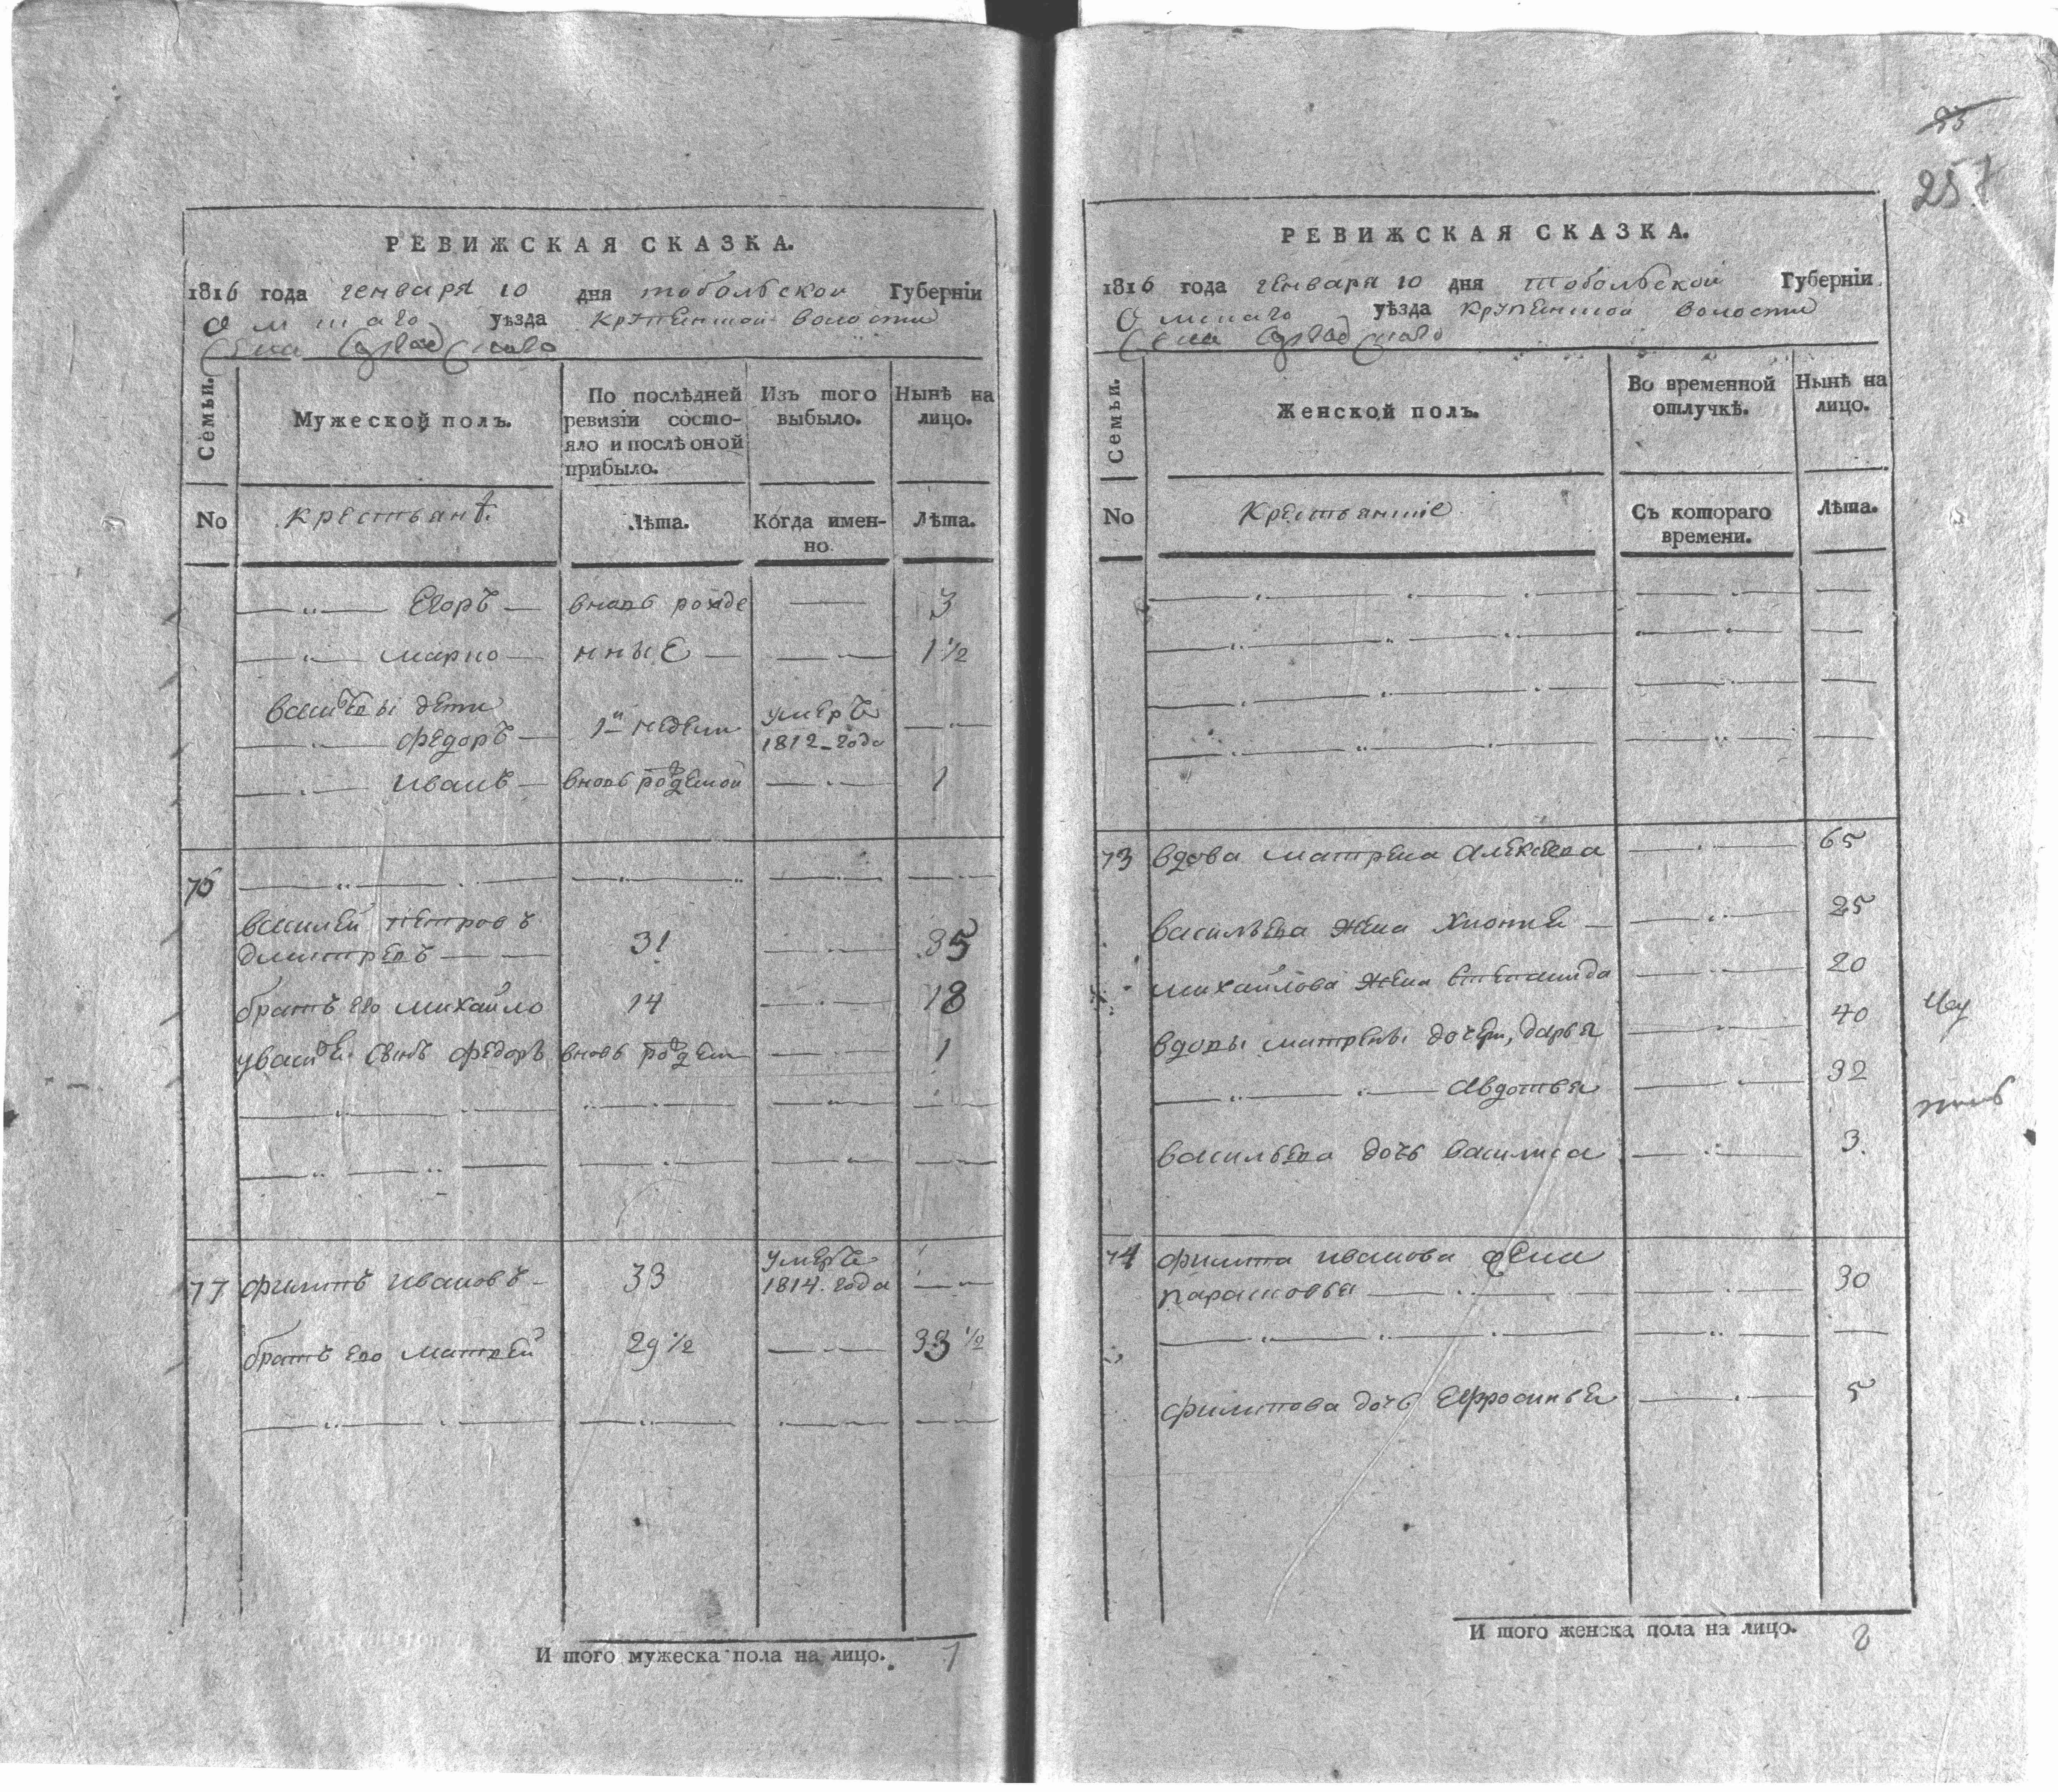 83
257
РЕВИЖСКАЯ СКАЗКА.
1816 года генваря 10 дня тобольской Губерніи
Омскаго уѣзда крупенской волости
Села
Семьи.
Мужеской полъ.
По послѣдней ревизіи состо-
яло и послѣ оной
прибыло.
Изъ того
выбыло.
Нынѣ на
лицо.
No
крестьянѣ
Лѣта.
Когда имен-
но.
Лѣта.
Егоръ вновь рожде 3
марко нные 1 1/2
васильевы дети
Федоръ 1 недели умеръ 1812 года
иванъ вновь рожденой 1
76
василей петровъ
дмитревъ 31 35
братъ его михайло 14 18
у васил. сынъ федоръ вновь рожден 1
77 филипъ ивановъ 33 умеръ 1814 года
братъ его матвей 29 1/2 33 1/2
И того мужеска пола на лицо. 7
РЕВИЖСКАЯ СКАЗКА.
1816 года генваря 10 дня тобольской Губерніи
Омскаго уѣзда крупенской волости
Села
Семьи.
Женской полъ.
Во временной
отлучкѣ.
Нынѣ на
лицо.
No
Крестьянкіе
Съ котораго
времени.
Лѣта.
73 вдова матрена алексеева 65
васильева жена Хиония 25
михайлова жена степанида 20
вдовы матрены дочери, дарья 40
авдотья 32
васильева дочь василиса 3
74 филипа иванова жена
парасковья 30
филипова дочь Ефросинья 5
И того женска пола на лицо. 8